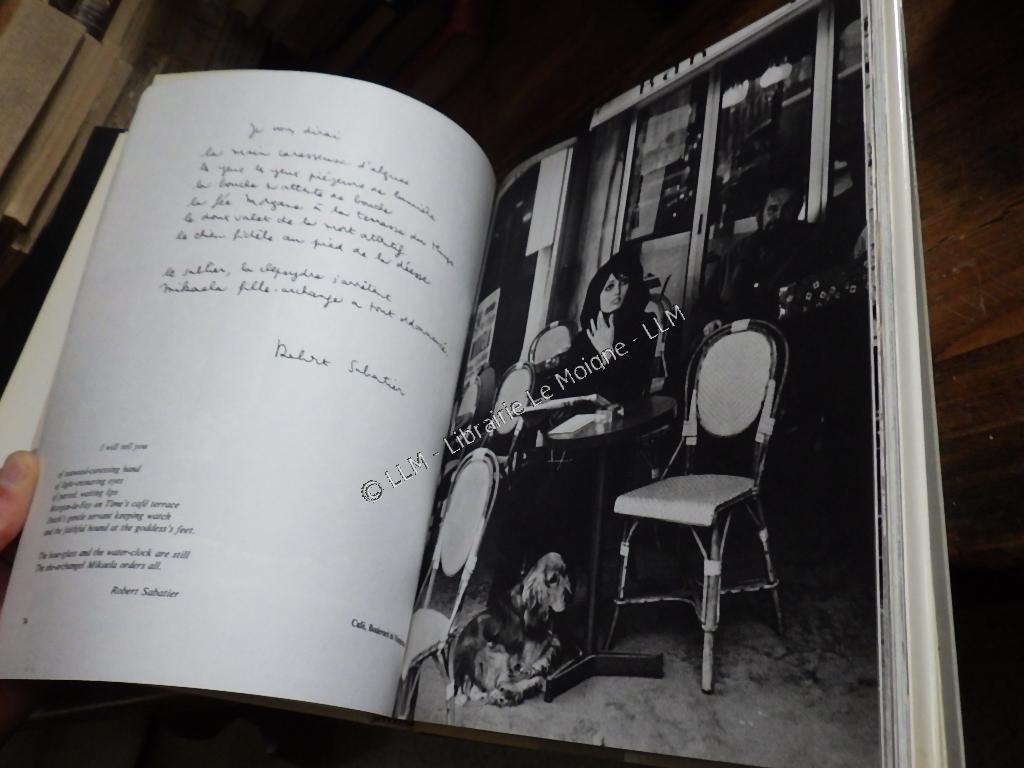 Je vous dirai
la main caresseuse d'algues
le yeux piégeurs de lumière
la bouche
la fée Morgane à la terrasse du temps
le doux valet de la mort attentif
le chien fidèle au pied de la déesse
le sablier, la clepsydre s'arrêtent
Mikaela fille-archange a tout
Robert Sabatier
I will tell you
of seaweed-caressing hand
of light-ensnaring eyes
of parted, waiting lips
Morgan-le-Fay on Time's café terrace
Death's gentle servant keeping watch
and the faithful hound at the goddess's feet.
The hour-glass and the water-clock are still
The she-archangel Mikaela orders all.
Robert Sabatier
Café, Boulevard du
© LLM - Librairie Le Moigne - LLM